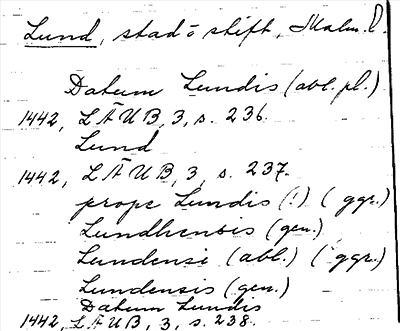 Lund, stad o stift, Malm. l.
Datum Lundis (abl. pl.)
1442, L Ä U B, 3, s. 236.
Lund
1442, L Ä U B, 3, s. 237.
prope Lundis (!) ( ggr.)
Lundhensis (gen.)
Lundensi (abl.) ( ggr.)
Lundensis (gen.)
Datum Lundis
1442, L Ä U B, 3, s. 238.